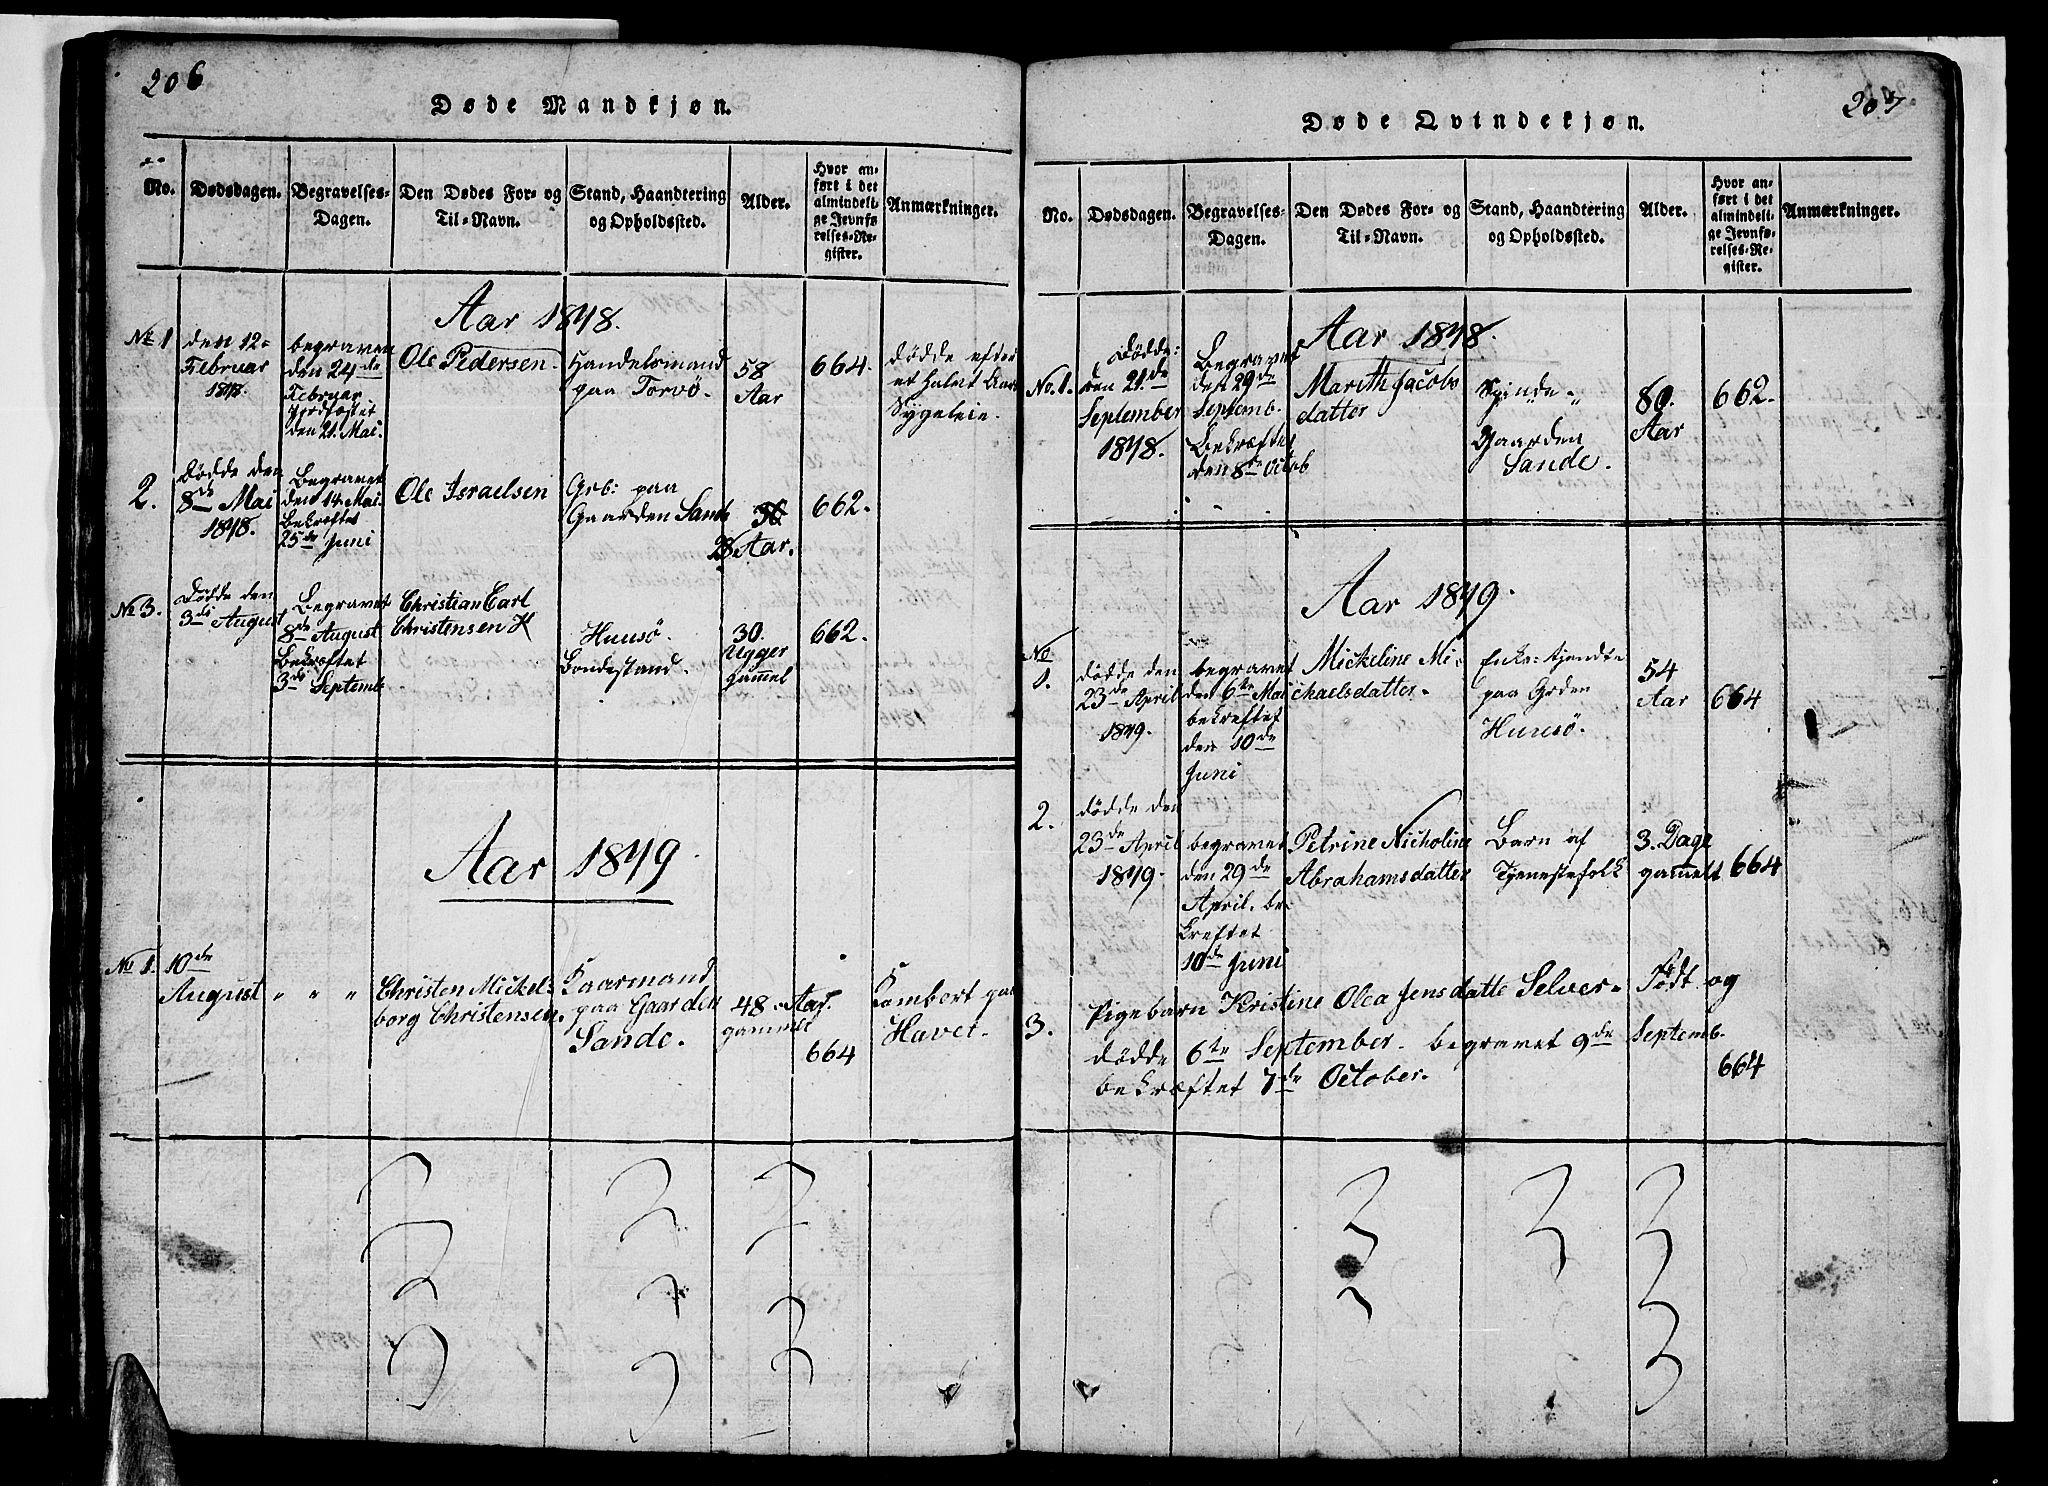 206
Døde Mandkjøn.
No.
Dødsdagen.
Begravelses-
Dagen.
Den Dødes For- og
Til-Navn.
Stand, Haandtering
og Opholdssted.
Alder.
Hvor an-
ført i det
almindeli-
ge Jevnfø-
relses-Re-
gister.
Anmærkninger.
Aar 1848.
No 1
den 12-
Februar
1848.
begraven
den 24de
Februar
Jordfæstet
den 21. Mai.
Ole Pedersen.
Handelsmand
paa Torvø.
58
Aar
664.
dødde efter
et halvt Aars
Sygeleie.
2.
Dødde den
8de Mai
1848.
Begravet
den 14. Mai.
Bekræftet
25de Juni
Ole Israelsen
Grb: paa
Gaarden Sande
28 Aar.
662.
No 3.
Dødde den
3de August
Begravet
8de August
Bekræftet
3de Septemb
Christian Carl
Christensen
Huusø.
Bondestand.
30.
Ugger
gammel
662.
Aar 1849
No 1.
10de
August
" " "
Christen Mickel-
borg Christensen.
Kaarmand
paa Gaarden
Sande.
48. Aar.
gammel
664
Kombort paa
Havet.
207
Døde Qvindekjøn.
No.
Dødsdagen.
Begravelses-
Dagen.
Den Dødes For- og
Til-Navn.
Stand, Haandtering
og Opholdssted.
Alder.
Hvor an-
ført i det
almindeli-
ge Jevnfø-
relses-Re-
gister.
Anmærkninger.
Aar 1848.
No. 1.
Dødde:
den 21.de
September
1848.
Begravet
den 29de
Septemb.
Bekræftet
den 8de Octob
Marith Jacobs
datter
Gaarden
Sande.
80.
Aar
662.
Aar 1849.
No
1.
dødde den
23de April
1849.
begravet
den 6te Mai
bekreftet
den 10de
Juni
Mickeline Mi-
chaelsdatter.
Enke: tjendte
paa Grden
Huusø.
54
Aar
664
2.
dødde den
23de April
1849.
begravet
den 29de
April. be-
kreftet
10de Juni
Petrine Nicholine
Abrahamsdatter
Barn af
Tjenestefolk
3. Dage
gammelt
664
3.
Pigebarn Kristine Olea Jensdatte Selver. Født og
dødde 6te September. begravet 9de Septemb.
bekræftet 7de October.
664